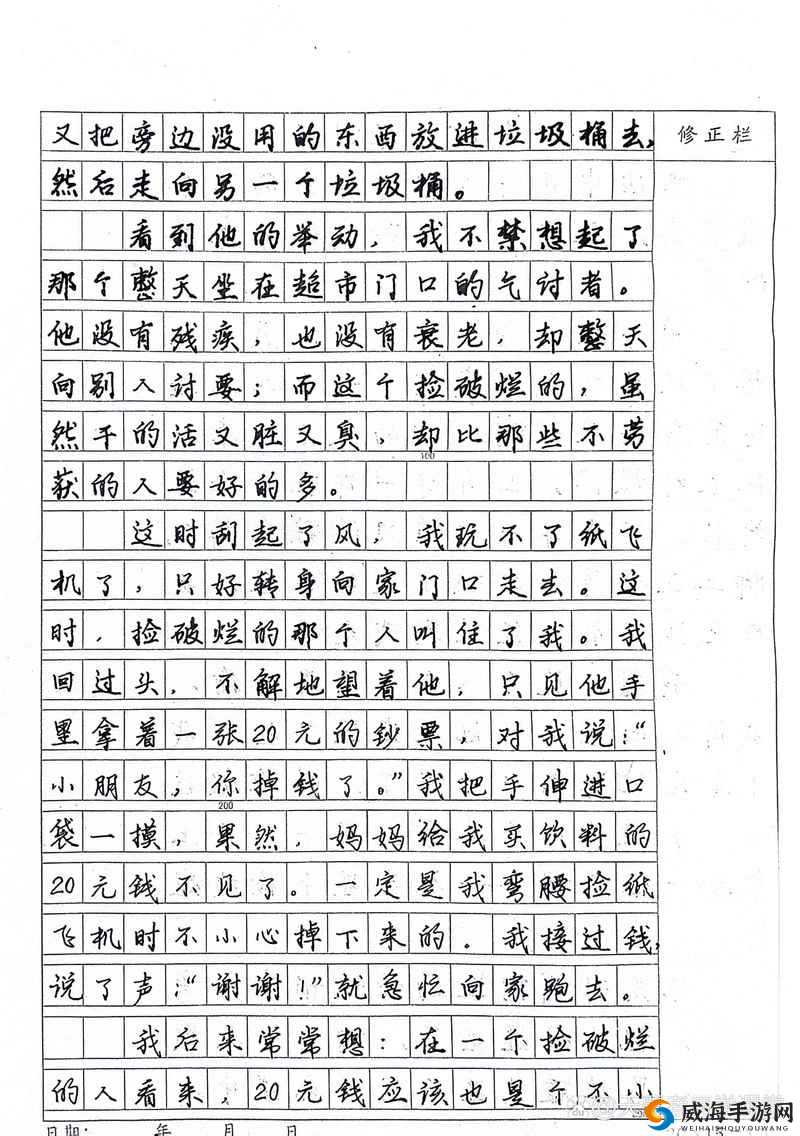 又把旁边没用的东西放进垃圾桶去,
修正栏
然后走向另一个垃圾桶。
看到他的举动，我不禁想起了
那个整天坐在超市门口的气讨者。
他没有残疾，也没有衰老，却整天
向别人讨要；而这个捡破烂的，虽
然干的活又脏又臭，却比那些不劳
100
获的人要好的多。
这时刮起了风，我玩不了纸飞
机了，只好转身向家门口走去。这
时，捡破烂的那个人叫住了我。我
回过头，不解地望着他，只见他手
里拿着一张20元的钞票，对我说：“
小朋友，你掉钱了。”我把手伸进口
200
袋一摸，果然，妈妈给我买饮料的
20元钱不见了。一定是我弯腰捡纸
飞机时不小心掉下来的。我接过钱,
说了声：“谢谢！”就急忙向家跑去。
我后来常常想：在一个捡破烂
的人看来，20元钱应该也是个不小
日期： 年 月 日
威海手游网
WEIHAISHOUYOUWANG